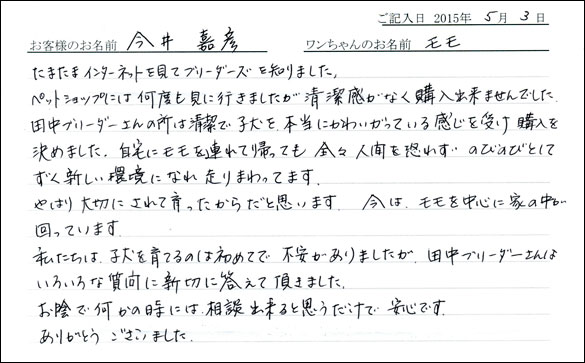 ご記入日 2015年 5月 3日
お客様のお名前 今井 嘉彦 ワンちゃんのお名前 モモ
たまたまインターネットを見てブリーダーズを知りました。
ペットショップには何度も見に行きましたが清潔感がなく購入出来ませんでした。
田中ブリーダーさんの所は清潔で子犬を本当にかわいがっている感じを受け購入を
決めました。自宅にモモを連れて帰っても全々人間を恐わず のびのびとして
すぐ新しい環境になれ走りまわってます。
やはり大切にされて育ったからだと思います。 今は、モモを中心に家の中が
回っています。
私たちは、子犬を育てるのは初めてで不安がありましたが、田中ブリーダーさんは
いろいろな質問に新切に答えて頂きました。
お陰で何かの時には相談出来ると思うだけで安心です。
ありがとうございました。